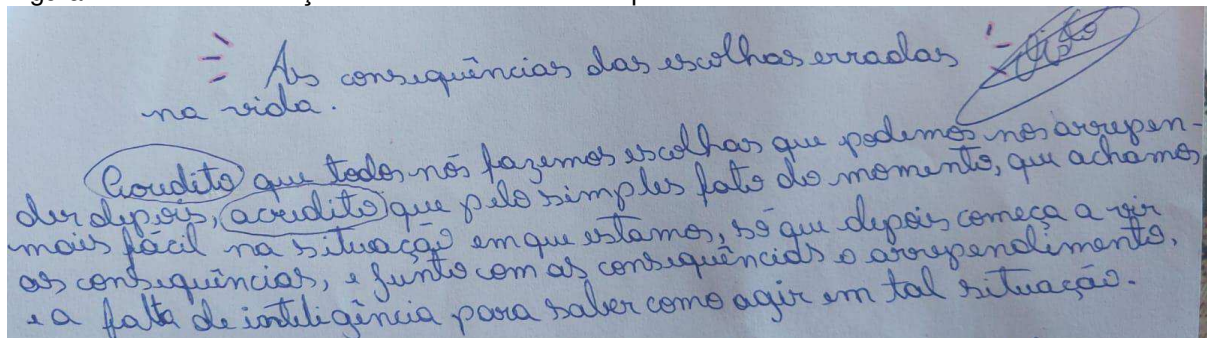 As consequências das escolhas erradas
na vida.
Visto
Acredito que todos nós fazemos escolhas que podemos nos arrepen-
der depois, acredito que pelo simples fato do momento, que achamos
mais fácil na situação em que estamos, só que depois começa a vir
as consequências, e junto com as consequências o arrependimento,
e a falta de inteligência para saber como agir em tal situação.